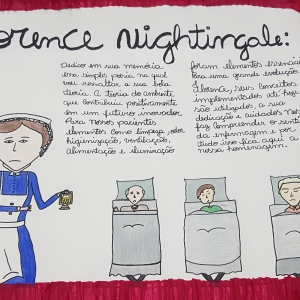 orence Nightingale:
Dedico em sua memória
essa simples poesia na qual
vou ressaltar a sua bela
teoria. A teoria do ambiente
que contribuiu positivamente
em um futuro inovador.
Para nossos pacientes
elementos como limpeza, odor
higienização, ventilação,
alimentação e iluminação
foram elementos essenciais
Para uma grande evolução
Florence, seus conceitos
implementados até hoje
são utilizados, a sua
dedicação e cuidados nos
faz compreender o senti
da enfermagem e por
tudo isso fica aqui a
nossa homenagem.